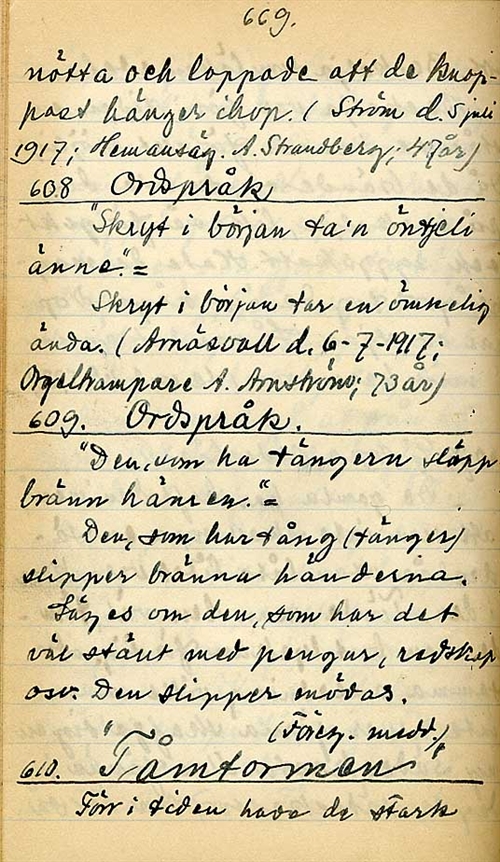 669.
nötta och loppade att de knop-
past hänger ihop. ( Ström d. 5 juli
1917; Hemansäg. A. Strandberg; 47 år)
608 Ordspråk
"Skryt i början ta'n öntjeli
änne." =
Skryt i början tar en ömkelig
ända. ( Arnäsvall d. 6-7-1917;
Orgeltrampare A. Arnström; 73 år)
609. Ordspråk.
"Den, som ha tångern släpp
bränn hännen." =
Den, som har tång (tänger)
slipper bränna händerna.
Säges om den, som har det
väl stänt med pengar, redskap
osv. Den slipper mödas.
" (Föreg. medd.)
610. Tåmtormen
Förr i tiden hade de stark